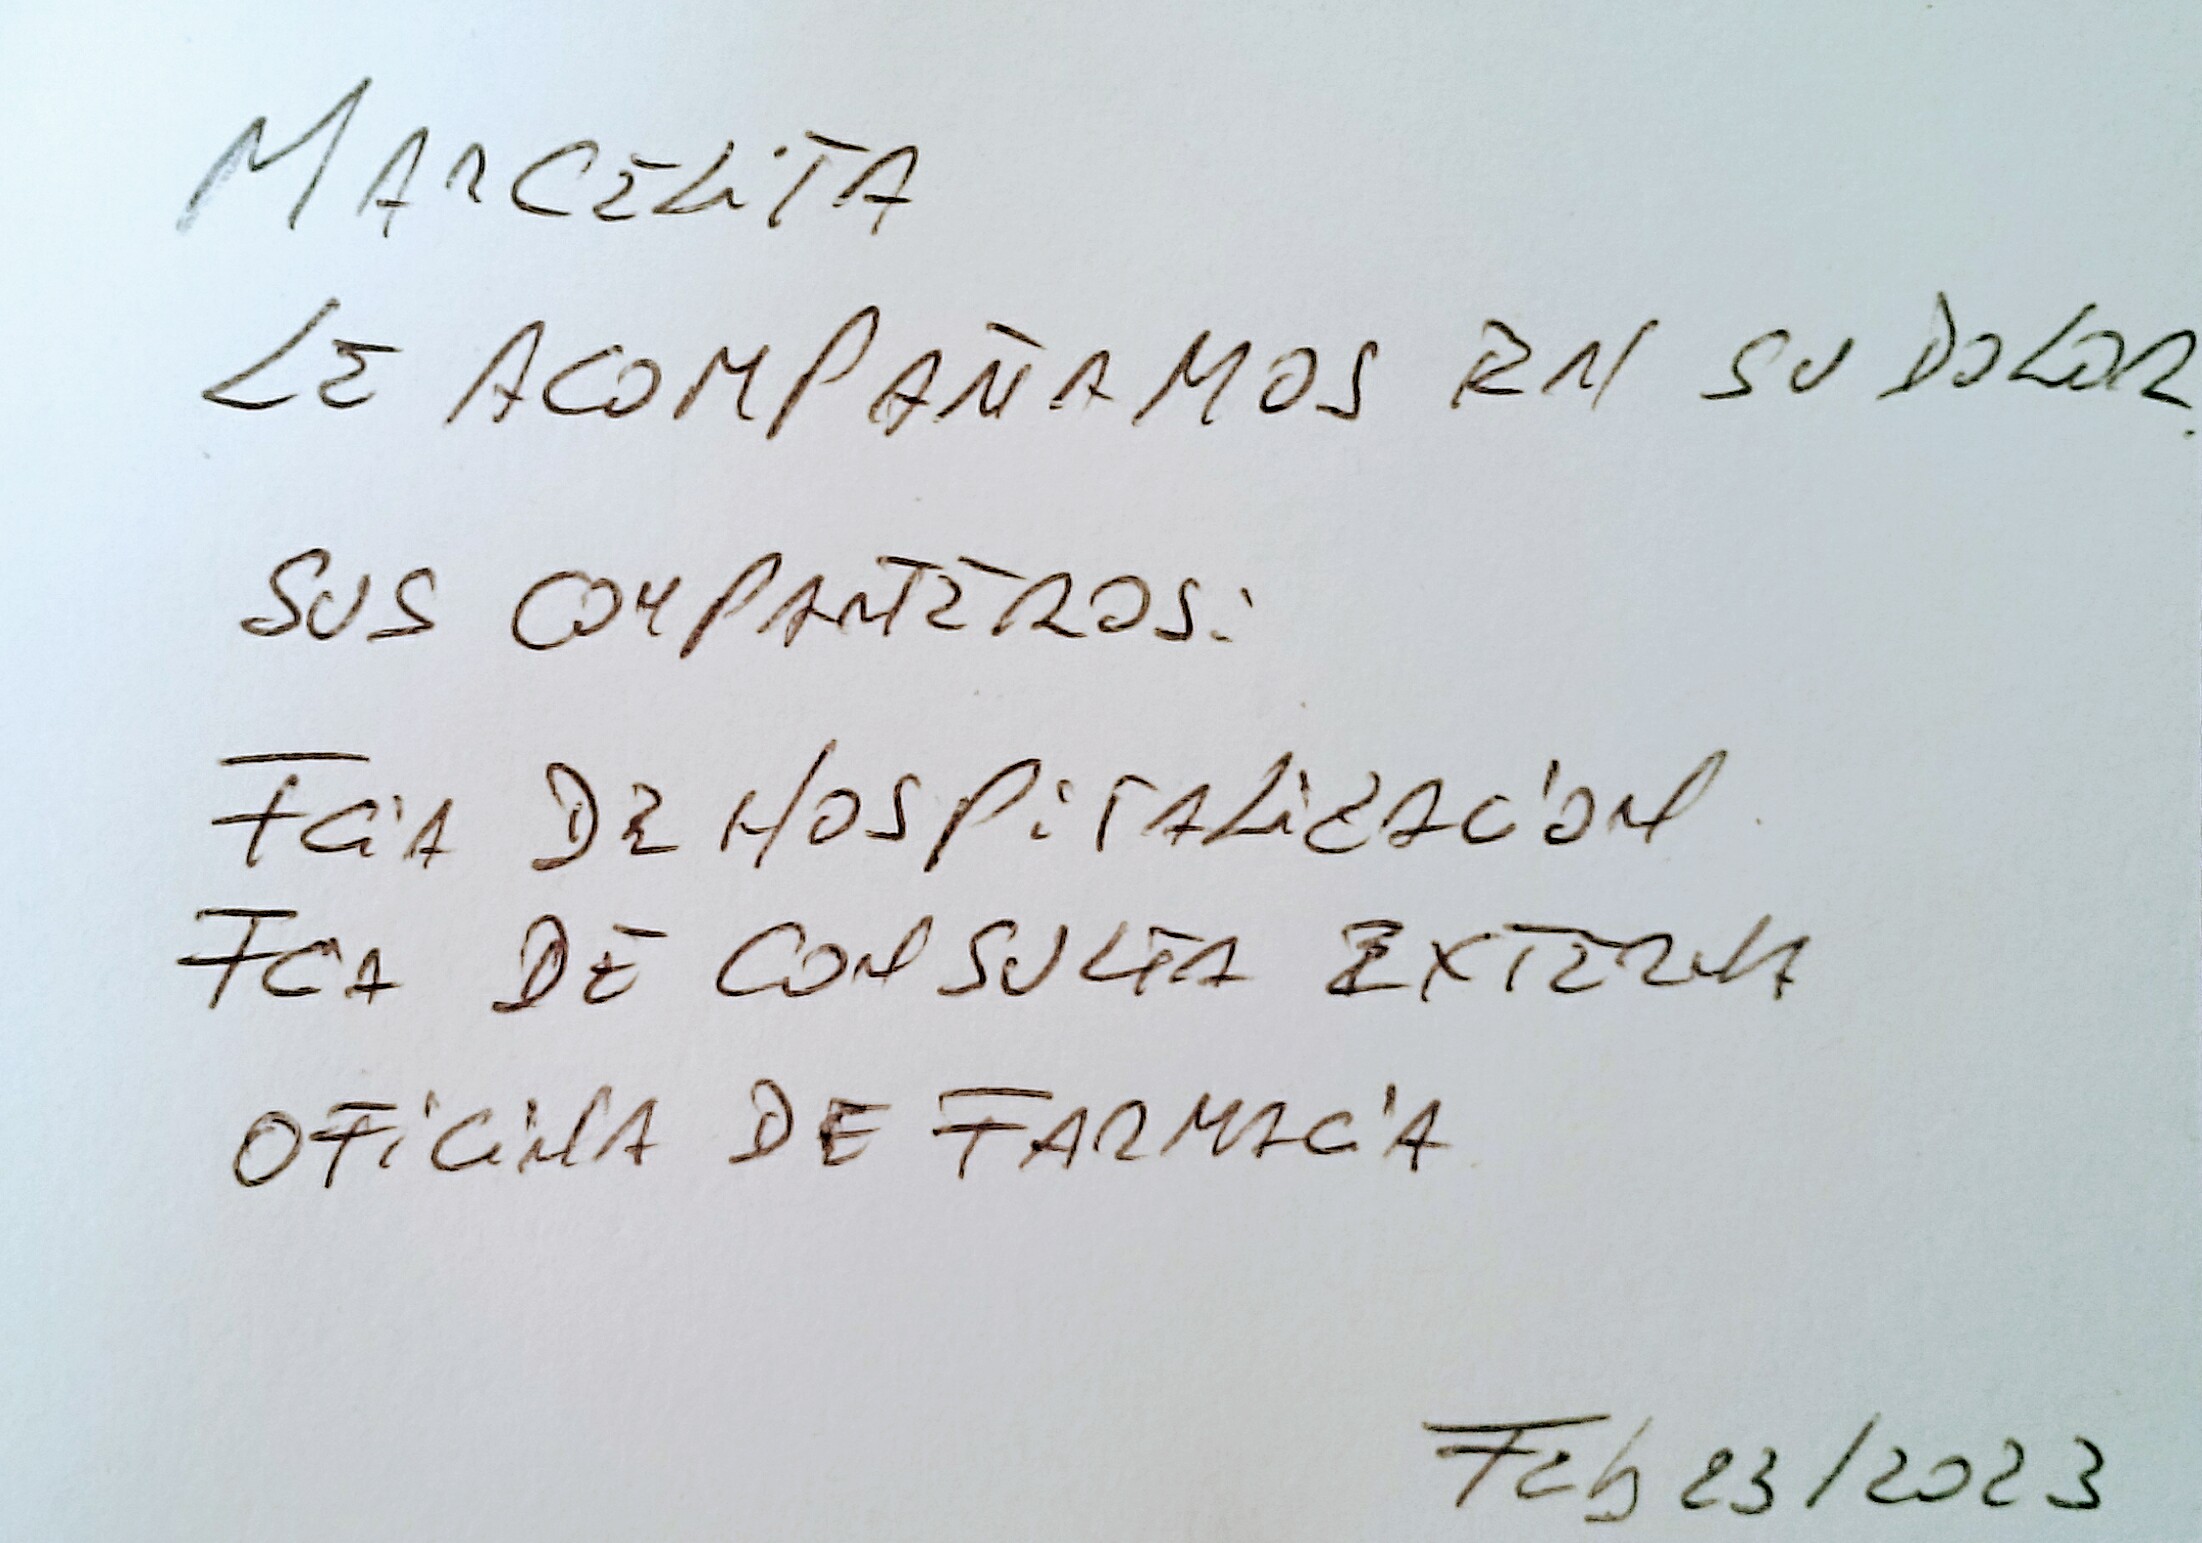 MARCELITA
LE ACOMPAÑAMOS EN SU DOLOR.
SUS COMPAÑEROS:
FCIA DE HOSPITALIZACION
FCA DE CONSULTA EXTERNA
OFICINA DE FARMACIA
Feb 23/2023